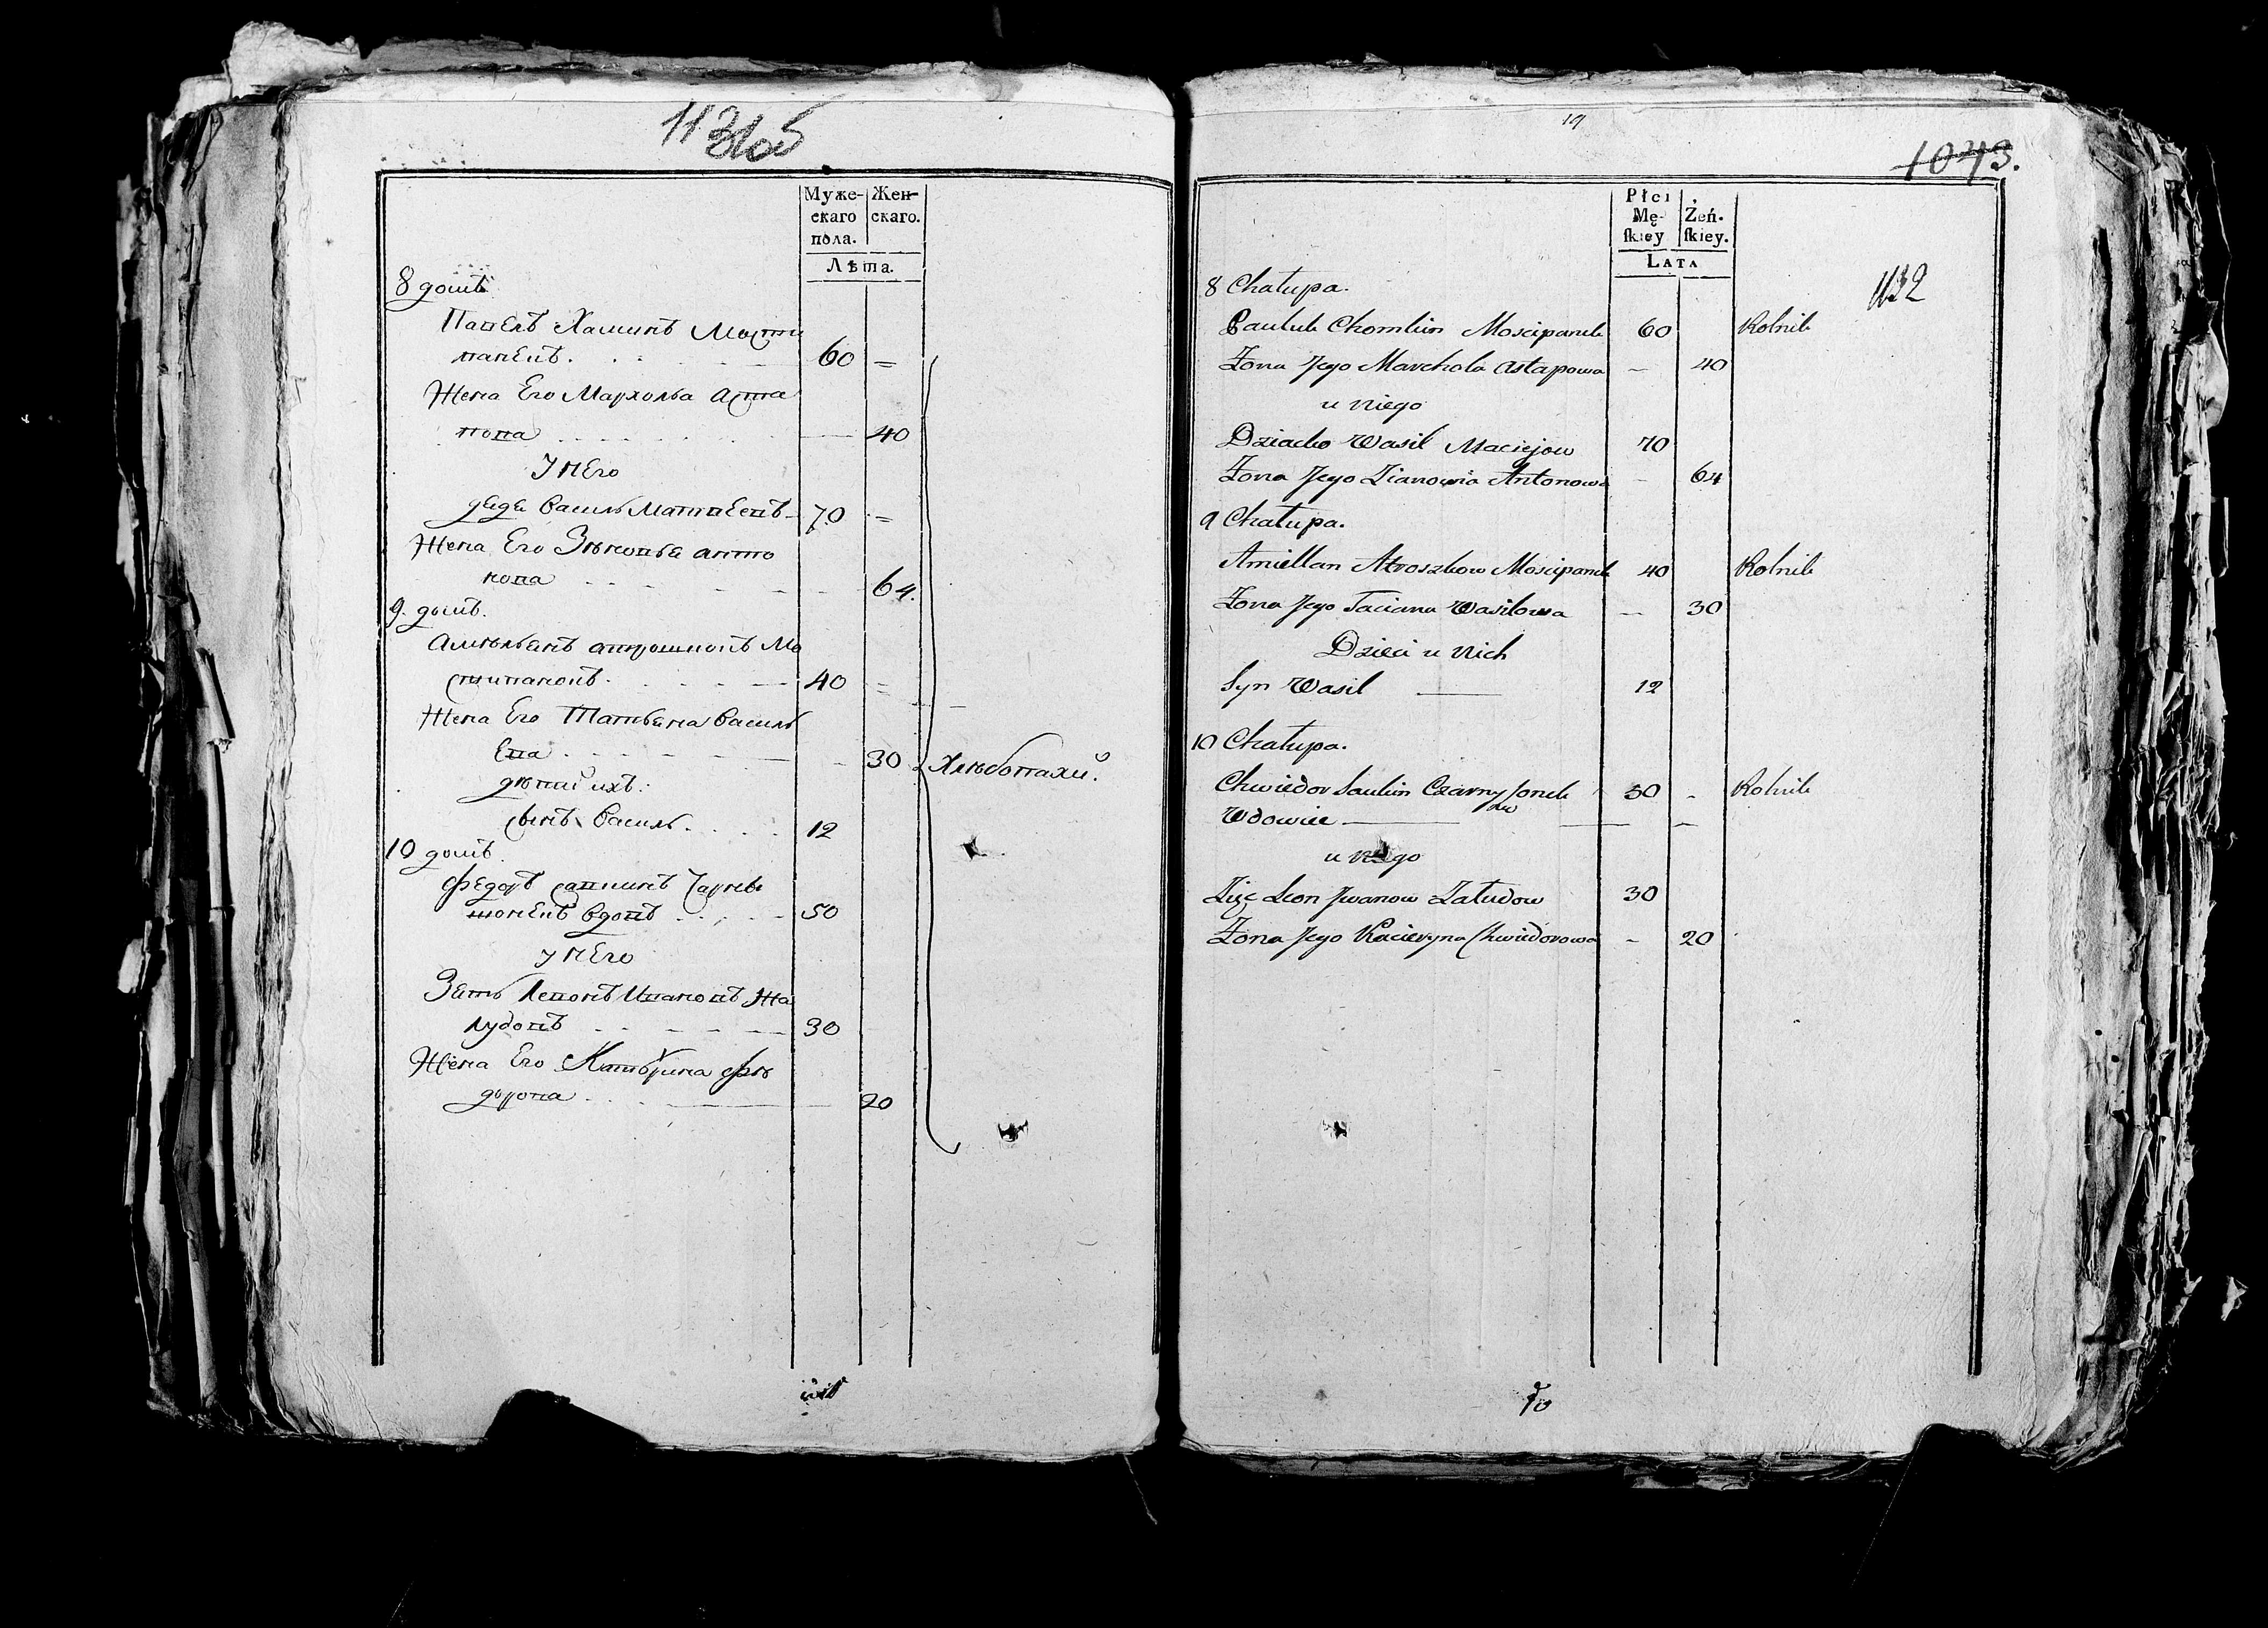 Муже-
скаго
пола.
Жен-
скаго.
Лѣта.
8 домъ
Павелъ Хаминъ Мости
пановъ.
60 =
Жена Его Мархолва Аста
пова
— 40
У Него
деде Василь Матвеевъ 70 =
Жена Его Зѣновья Анто
нова
— 64.
9. домъ.
Амельянъ Атрошковъ Мо
стипановъ. 40 =
Жена Его Татьяна Василь
Ева — 30
Хлебопахи.
дѣтей ихъ:
сынъ Василь. 12
10 домъ
Федоръ Савкинъ Чарны
шонекъ вдовъ 50
У Него
Зять Левонъ Ивановъ Жа
лудовъ 30
Жена Его Катѣрина Фе
дорова — 20
19
1043.
Płci
Mę-
ſkiey
Żeń-
ſkiey.
LATA
1132
8 Chałupa.
Pauluk Chomkin Moscipanuk 60 Rolnik
Żona Jego Marchola Astapowa — 40
u niego
Dziadko Wasil Maciejow 70
Żona Jego Zianowia Antonowa — 64
9 Chałupa.
Amiellan Atroszkow Moscipanuk 40 Rolnik
Żona Jego Taciana Wasilowa — 30
Dzieci u nich
Syn Wasil — 12
10 Chałupa.
Chwiedor Saukin Czarnyszonek 30 - Rolnik
Wdowiec — — —
u niego
Zięć Leon Jwanow Załudow 30
Żona Jego Kacieryna Chwiedorowa - 20